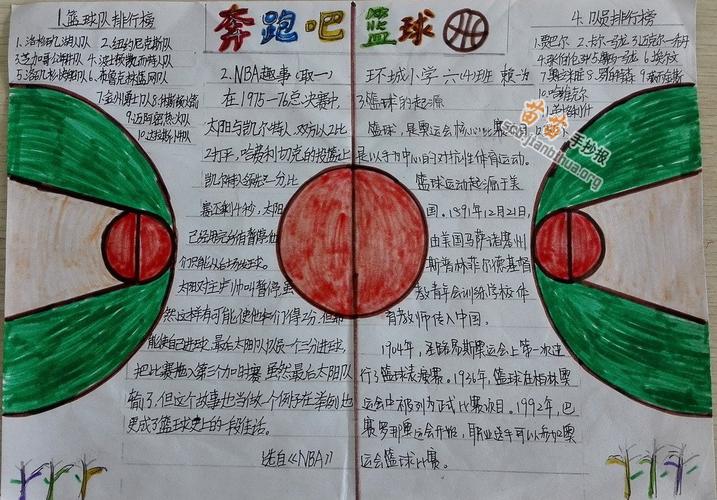 奔跑吧 篮球
1.篮球队排行榜
1.洛杉矶湖人队 2.纽约尼克斯队
3.芝加哥公牛队 4.波士顿凯尔特人队
5.洛杉矶快船队 6.布鲁克林篮网队
7.金州勇士队 8.休斯顿火箭队
9.迈阿密热火队
10.达拉斯小牛队
2.NBA趣事(取一)
在1975-76总决赛中,
太阳与凯尔特人,双方以2比
2打平,哈弗利切克的投篮让
凯尔特人领先一分比
赛还剩4秒,太阳
已经用完所有暂停他
们只能从后场发球。
太阳对主史帅叫暂停虽
然这样有可能使他率们得2分,但
能使自己进球,最后太阳队以投一个三分进球,
把比赛拖入第三个加时赛 虽然最后太阳队
输了,但这个故事也当做个例子在举例也
变成了篮球史上的一段佳话。
选自《NBA》
环城小学 六(4)班 赖为
3.篮球的起源
篮球,是奥运会核心比赛项目,
是以手为中心的对抗性体育运动。
篮球运动起源于美
国。1891年12月21日,
由美国马萨诸塞州
斯普林菲尔德基督
教青年会训练学校体
育教师传入中国。
1904年,圣路易斯奥运会上第一次进
行了篮球表演赛。1936年,篮球在柏林奥
运会中被列为正式比赛项目。1992年,巴
塞罗那奥运会开始,职业选手可以参加奥
运会篮球比赛。
4.队员排行榜
1.贾巴尔 2.卡尔·马龙 3.迈克尔·乔丹
4.张伯伦 5.科比 6.埃尔文
7.奥尼尔 8.罗伯特森 9.
10.哈维克尔
苗苗手抄报
5copy.jianbihua.org